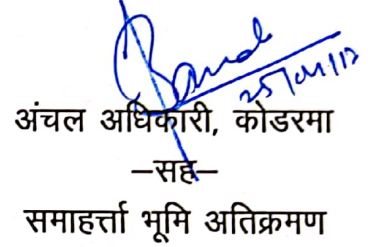 25/01/12
अंचल अधिकारी, कोडरमा
–सह–
समाहर्त्ता भूमि अतिक्रमण